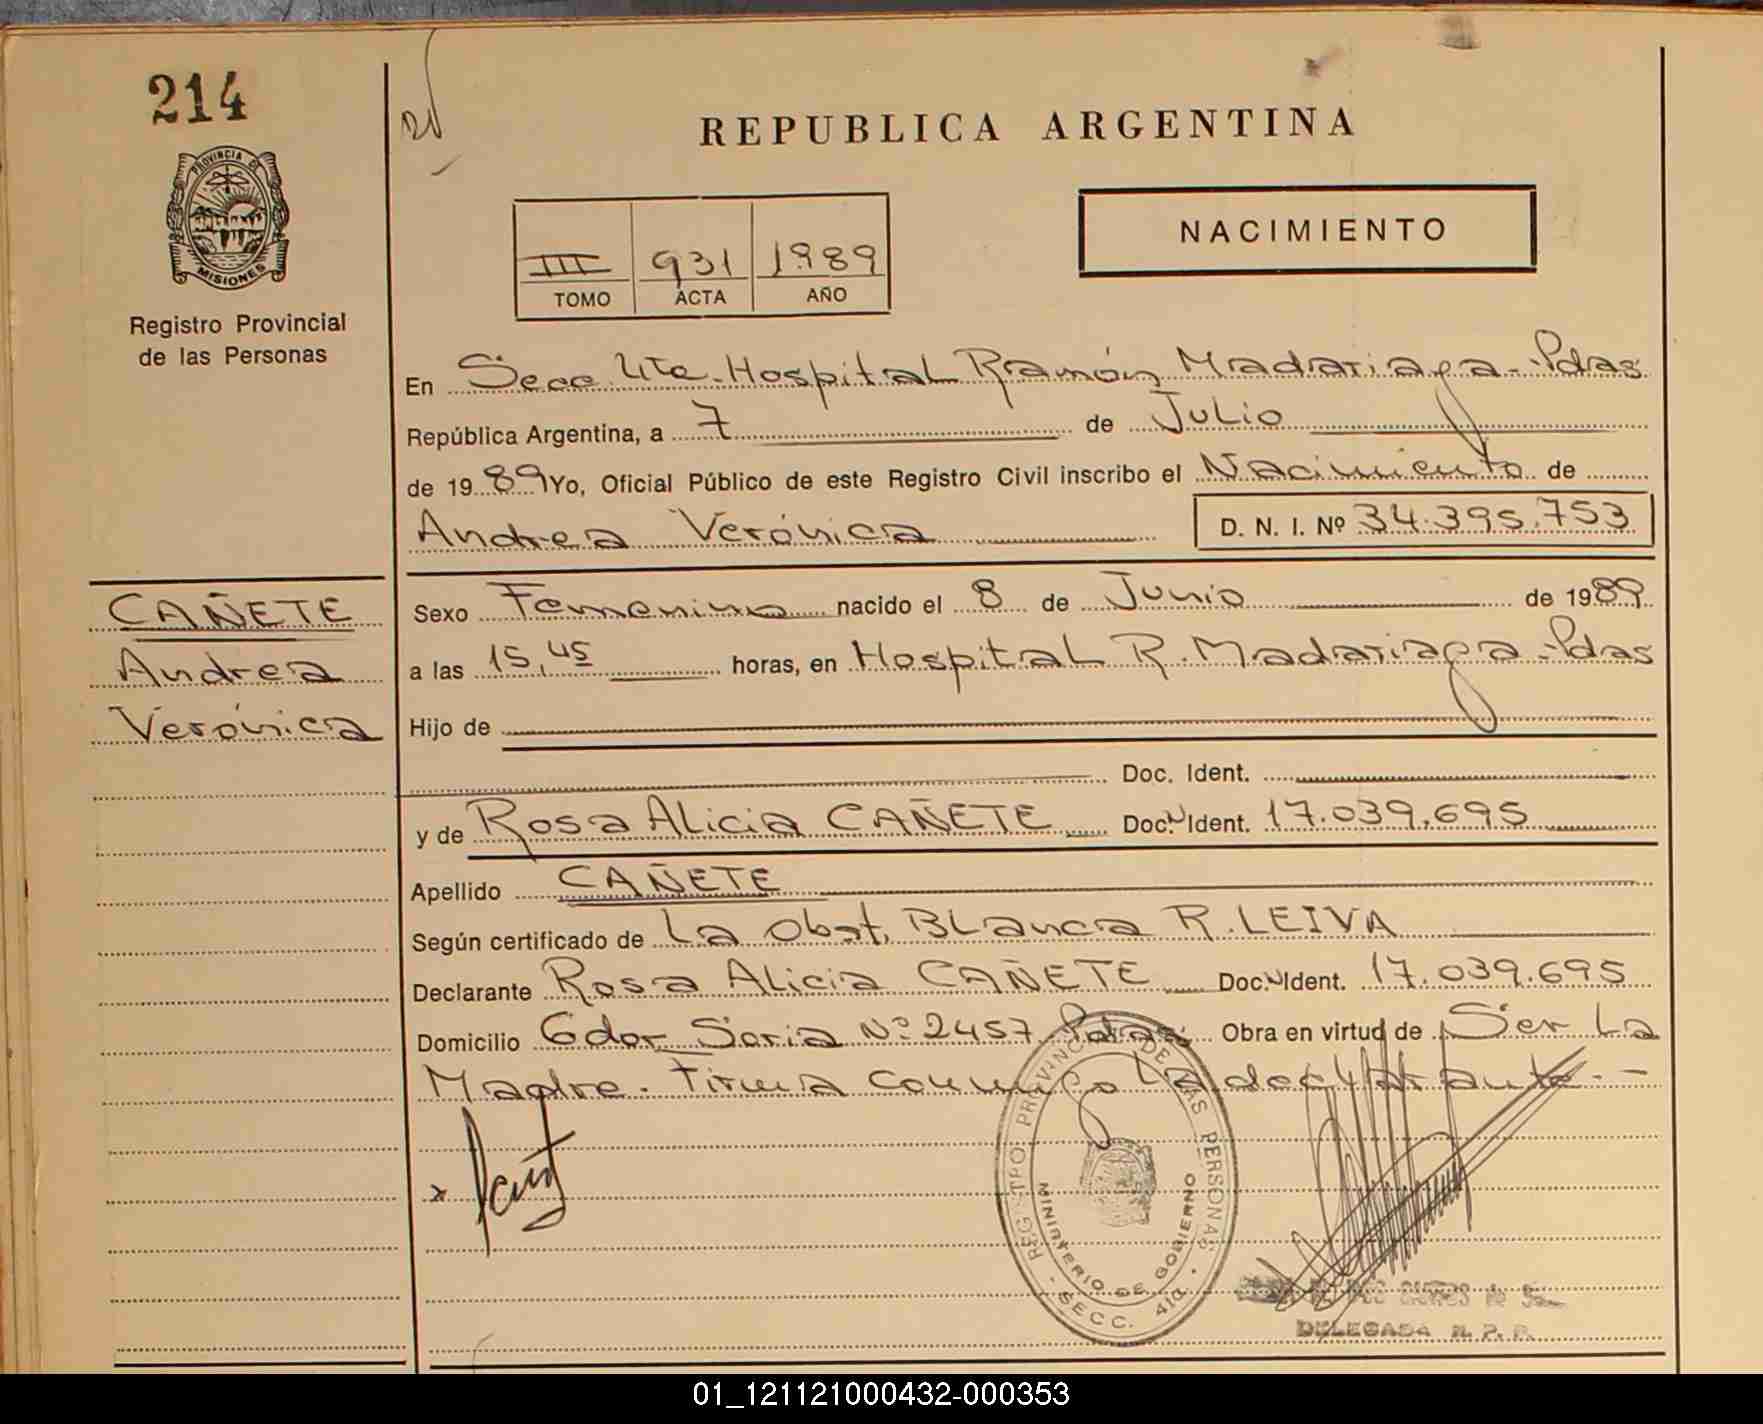 214
REPUBLICA ARGENTINA
PROVINCIA DE
MISIONES
Registro Provincial
de las Personas
III 931 1989
TOMO ACTA AÑO
NACIMIENTO
En Secc. 4ta. Hospital Ramón Madariaga - Pdas
República Argentina, a 7 de Julio
de 1989 Yo, Oficial Público de este Registro Civil inscribo el Nacimiento de
Andrea Verónica D. N. I. Nº 34.395.753
CAÑETE
Andrea
Verónica
Sexo Femenino nacido el 8 de Junio de 1989
a las 15,45 horas, en Hospital R. Madariaga - Pdas
Hijo de
Doc. Ident.
y de Rosa Alicia CAÑETE Doc. N Ident. 17.039.695
Apellido CAÑETE
Según certificado de La Obst. Blanca R. LEIVA
Declarante Rosa Alicia CAÑETE Doc. N Ident. 17.039.695
Domicilio Gdor Soria Nº 2457 Pdas. Obra en virtud de Ser La
Madre. Firma conmigo la declarante. -
REGISTRO PROVINCIAL DE LAS PERSONAS
MINISTERIO DE GOBIERNO
SECC. 4ta.
DELEGADA R. P. P.
01_121121000432-000353